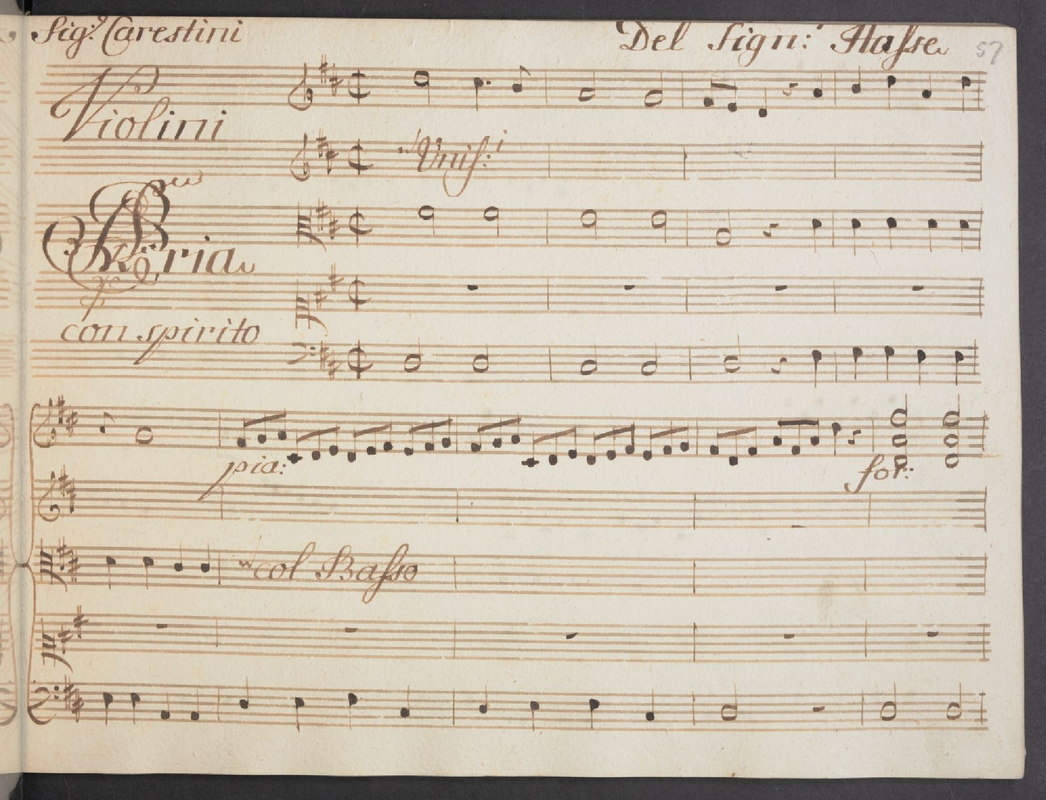 Sig.r Carestini
Del Sign: Hasse 57
Violini
Unis:i
Aria
con spirito
pia:
for:
col Basso